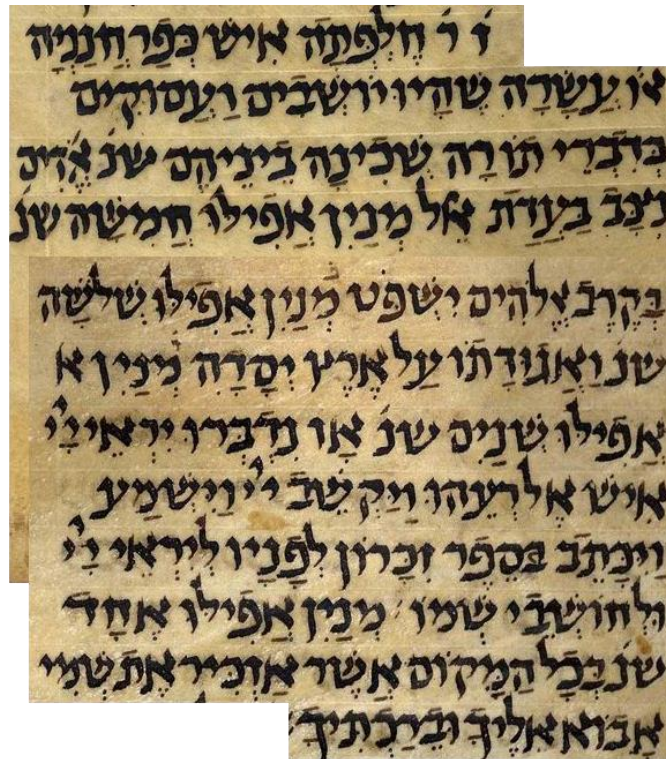 ז ר חֲלַפְתָּה אִישׁ כְּפַר חֲנַנְיָה
או עֲשָׂרָה שֶׁהָיוּ יוֹשְׁבִים וַעֲסוּקִים
בְּדִבְרֵי תוֹרָה שְׁכִינָה בֵּינֵיהֶם שנ אֱדִים
נִצָּב בַּעֲדַת אֵל מְנַיִן אֲפִילּוּ חֲמִשָּׁה שנ
בְּקֶרֶב אֱלֹהִים יִשְׁפֹּט מְנַיִן אֲפִילּוּ שְׁלשָׁה
שנ וַאֲגוּדָתוֹ עַל אֶרֶץ יְסָדָהּ מְנַיִן א
אֲפִילּוּ שְׁנַיִם שנ אָז נִדְבְּרוּ יִרְאֵי יְיָ
אִישׁ אֶל רֵעֵהוּ וַיַּקְשֵׁב יְיָ וַיִּשְׁמַע
וַיִּכָּתֵב בְּסֵפֶר זִכָּרוֹן לְפָנָיו לְיִרְאֵי יְיָ
וּלְחוֹשְׁבֵי שְׁמוֹ מְנַיִן אֲפִילּוּ אֶחָד
שנ בְּכָל הַמָּקוֹם אֲשֶׁר אַזְכִּיר אֶת שְׁמִי
אָבוֹא אֵלֶיךָ וּבֵרַכְתִּיךָ